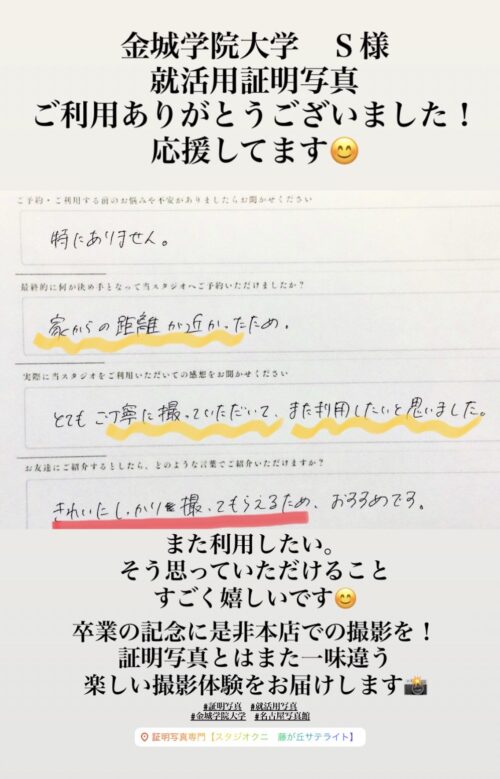 金城学院大学　S様
就活用証明写真
ご利用ありがとうございました！
応援してます😊
ご予約・ご利用する前のお悩みや不安がありましたらお聞かせください
特にありません。
最終的に何が決め手となって当スタジオへご予約いただけましたか？
家からの距離が近かったため。
実際に当スタジオをご利用いただいての感想をお聞かせください
とてもご丁寧に撮っていただいて、また利用したいと思いました。
お友達にご紹介するとしたら、どのような言葉でご紹介いただけますか？
きれいにしっかり撮ってもらえるため、おすすめです。
また利用したい。
そう思っていただけること
すごく嬉しいです😊
卒業の記念に是非本店での撮影を！
証明写真とはまた一味違う
楽しい撮影体験をお届けします📸
#証明写真　#就活用写真
#金城学院大学　#名古屋写真館
証明写真専門【スタジオクニ　藤が丘サテライト】